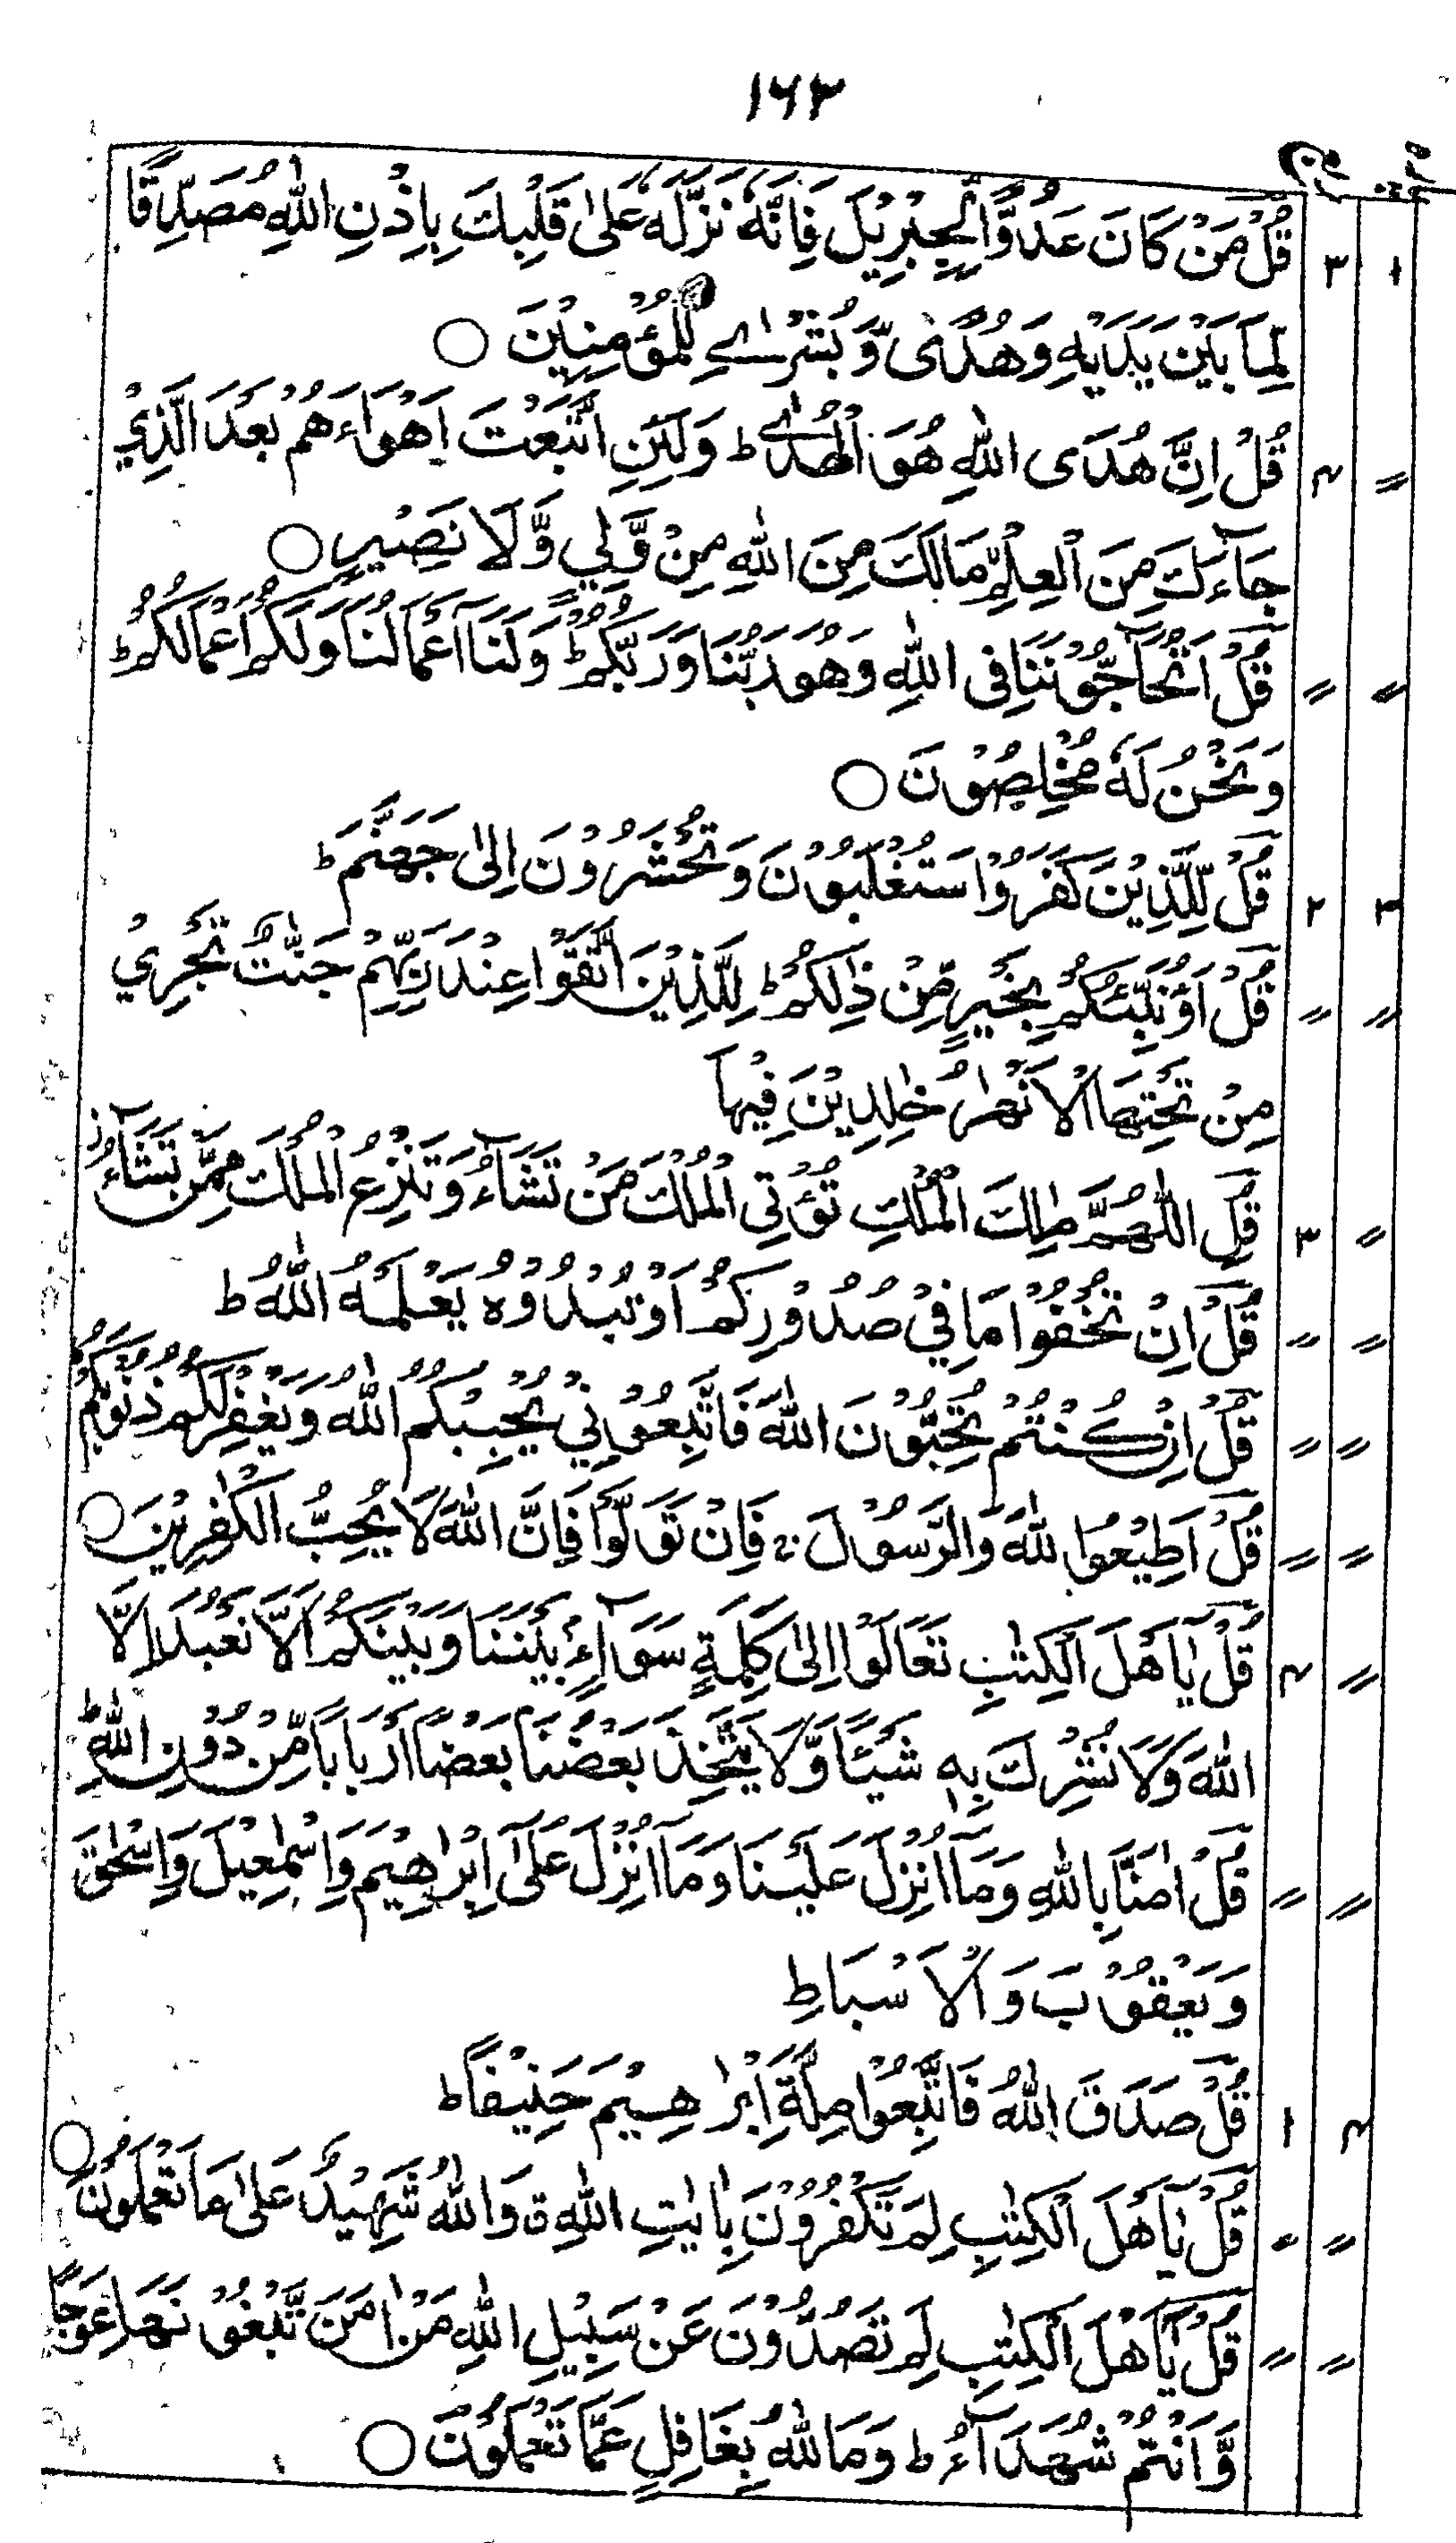 ۱۶۳
قُلْ مَنْ كَانَ عَدُوًّا لِّجِبْرِيْلَ فَاِنَّهٗ نَزَّلَهٗ عَلٰى قَلْبِكَ بِاِذْنِ اللّٰهِ مُصَدِّقًا ۳ ۱
لِّمَا بَيْنَ يَدَيْهِ وَهُدًى وَّبُشْرٰى لِلْمُؤْمِنِيْنَ ○
قُلْ اِنَّ هُدَى اللّٰهِ هُوَ الْهُدٰى ط وَلَئِنِ اتَّبَعْتَ اَهْوَآءَهُمْ بَعْدَ الَّذِيْ ۴ =
جَآءَكَ مِنَ الْعِلْمِ مَالَكَ مِنَ اللّٰهِ مِنْ وَّلِيٍّ وَّلَا نَصِيْرٍ ○
قُلْ اَتُحَآجُّوْنَنَا فِى اللّٰهِ وَهُوَ رَبُّنَا وَرَبُّكُمْ ط وَلَنَا اَعْمَالُنَا وَلَكُمْ اَعْمَالُكُمْ ط = =
وَنَحْنُ لَهٗ مُخْلِصُوْنَ ○
قُلْ لِّلَّذِيْنَ كَفَرُوْا سَتُغْلَبُوْنَ وَتُحْشَرُوْنَ اِلٰى جَهَنَّمَ ط ۲ ۳
قُلْ اَؤُنَبِّئُكُمْ بِخَيْرٍ مِّنْ ذٰلِكُمْ ط لِلَّذِيْنَ اتَّقَوْا عِنْدَ رَبِّهِمْ جَنّٰتٌ تَجْرِيْ = =
مِنْ تَحْتِهَا الْاَنْهٰرُ خٰلِدِيْنَ فِيْهَا
قُلِ اللّٰهُمَّ مٰلِكَ الْمُلْكِ تُؤْتِى الْمُلْكَ مَنْ تَشَآءُ وَتَنْزِعُ الْمُلْكَ مِمَّنْ تَشَآءُ ز ۳ =
قُلْ اِنْ تُخْفُوْا مَا فِيْ صُدُوْرِكُمْ اَوْ تُبْدُوْهُ يَعْلَمْهُ اللّٰهُ ط = =
قُلْ اِنْ كُنْتُمْ تُحِبُّوْنَ اللّٰهَ فَاتَّبِعُوْنِيْ يُحْبِبْكُمُ اللّٰهُ وَيَغْفِرْ لَكُمْ ذُنُوْبَكُمْ = =
قُلْ اَطِيْعُوا اللّٰهَ وَالرَّسُوْلَ ج فَاِنْ تَوَلَّوْا فَاِنَّ اللّٰهَ لَا يُحِبُّ الْكٰفِرِيْنَ ○ = =
قُلْ يٰٓاَهْلَ الْكِتٰبِ تَعَالَوْا اِلٰى كَلِمَةٍ سَوَآءٍۭ بَيْنَنَا وَبَيْنَكُمْ اَلَّا نَعْبُدَ اِلَّا ۴ =
اللّٰهَ وَلَا نُشْرِكَ بِهٖ شَيْئًا وَّلَا يَتَّخِذَ بَعْضُنَا بَعْضًا اَرْبَابًا مِّنْ دُوْنِ اللّٰهِ ط
قُلْ اٰمَنَّا بِاللّٰهِ وَمَآ اُنْزِلَ عَلَيْنَا وَمَآ اُنْزِلَ عَلٰٓى اِبْرٰهِيْمَ وَاِسْمٰعِيْلَ وَاِسْحٰقَ = =
وَيَعْقُوْبَ وَالْاَسْبَاطِ
قُلْ صَدَقَ اللّٰهُ فَاتَّبِعُوْا مِلَّةَ اِبْرٰهِيْمَ حَنِيْفًا ط ۱ ۴
قُلْ يٰٓاَهْلَ الْكِتٰبِ لِمَ تَكْفُرُوْنَ بِاٰيٰتِ اللّٰهِ ق وَاللّٰهُ شَهِيْدٌ عَلٰى مَا تَعْمَلُوْنَ ○ = =
قُلْ يٰٓاَهْلَ الْكِتٰبِ لِمَ تَصُدُّوْنَ عَنْ سَبِيْلِ اللّٰهِ مَنْ اٰمَنَ تَبْغُوْنَهَا عِوَجًا = =
وَّاَنْتُمْ شُهَدَآءُ ط وَمَا اللّٰهُ بِغَافِلٍ عَمَّا تَعْمَلُوْنَ ○